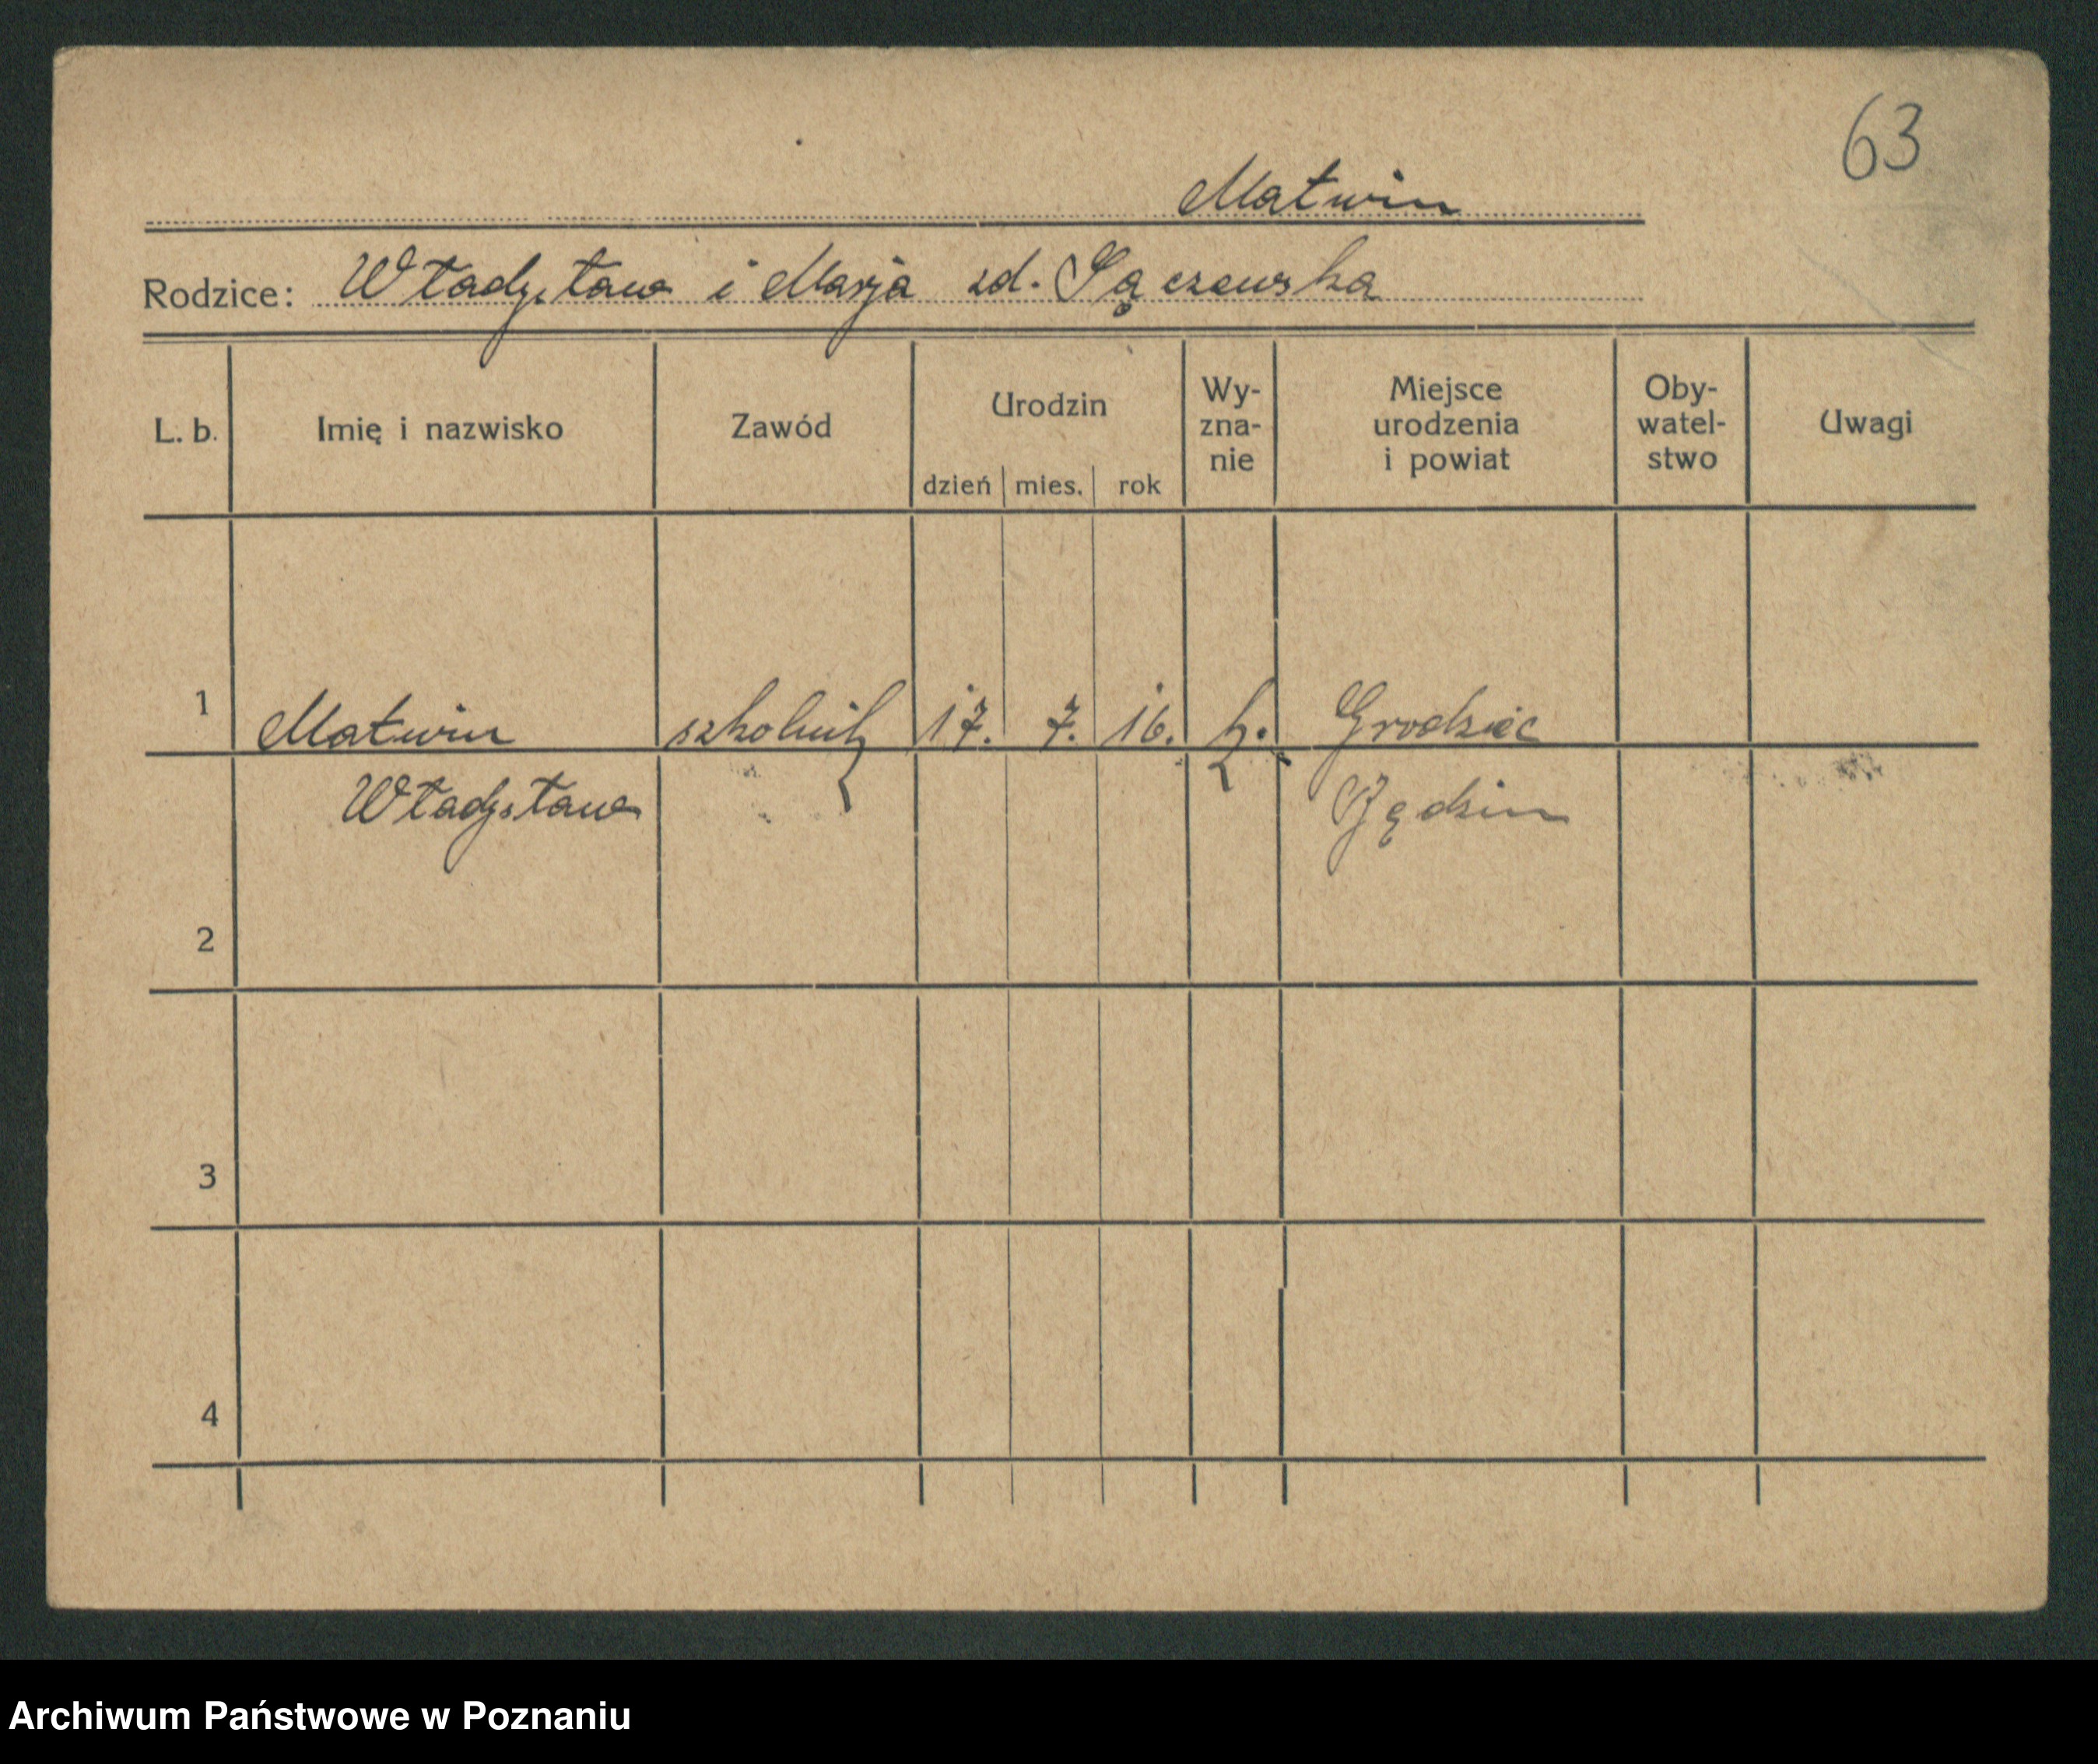 63
Matwin
Rodzice: Władysław i Marja zd. Sączewska
L. b. Imię i nazwisko Zawód Urodzin dzień mies. rok Wy-zna-nie Miejsce urodzenia i powiat Oby-watel-stwo Uwagi
1 Matwin szkolnik 17. 7. 16. k. Grodziec
Władysław Będzin
2
3
4
Archiwum Państwowe w Poznaniu